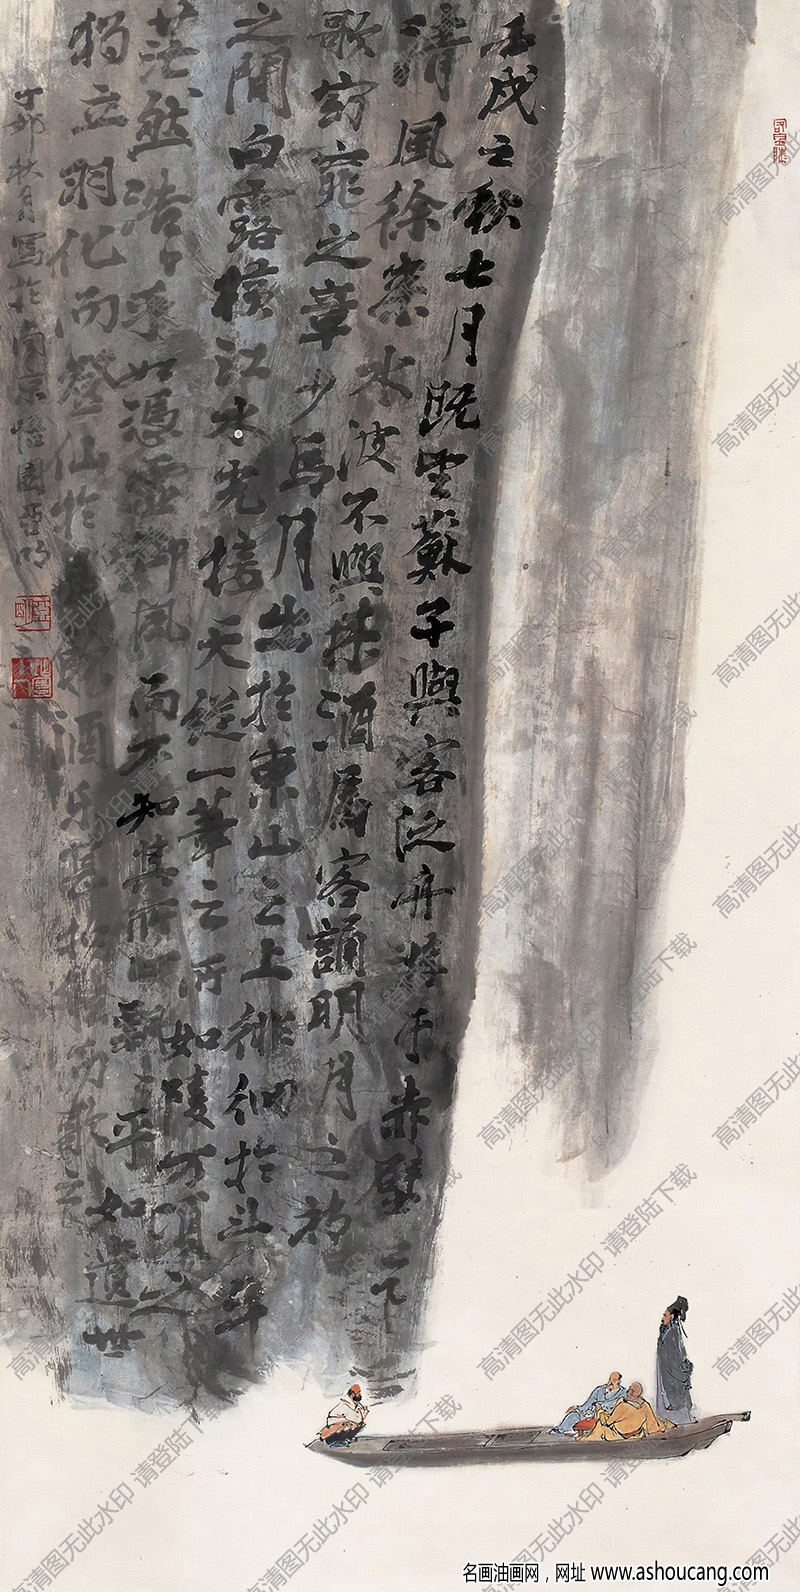 壬戌之秋七月既望蘇子與客泛舟游于赤壁之下
清風徐来水波不興举酒屬客誦明月之詩
歌窈窕之章少焉月出於東山之上徘徊於斗牛
之間白露横江水光接天縱一葦之所如陵万頃之
茫然浩々乎如憑虚御風而不知其所止飄々乎如遺世
獨立羽化而登仙於是飲酒乐甚扣舷而歌之
丁卯秋月寫於南京悟園亚明
高清图无此水印 请登陆下载
名画油画网，网址 www.ashoucang.com